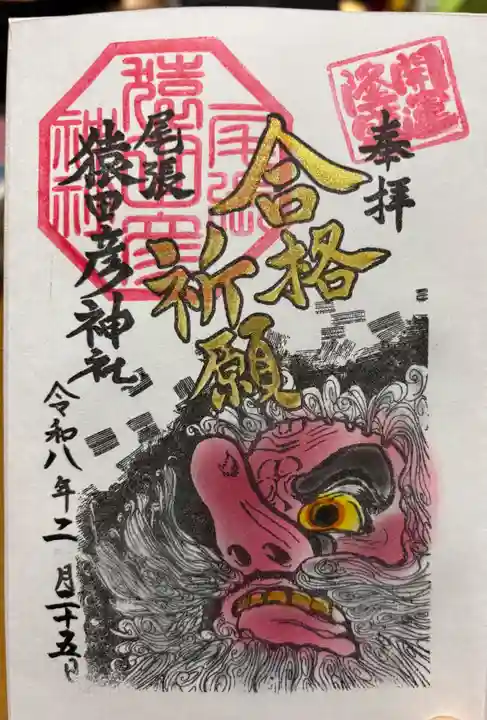 奉拝
開運
隆昌
合格
祈願
尾張
猿田彦神社
令和八年二月二十五日